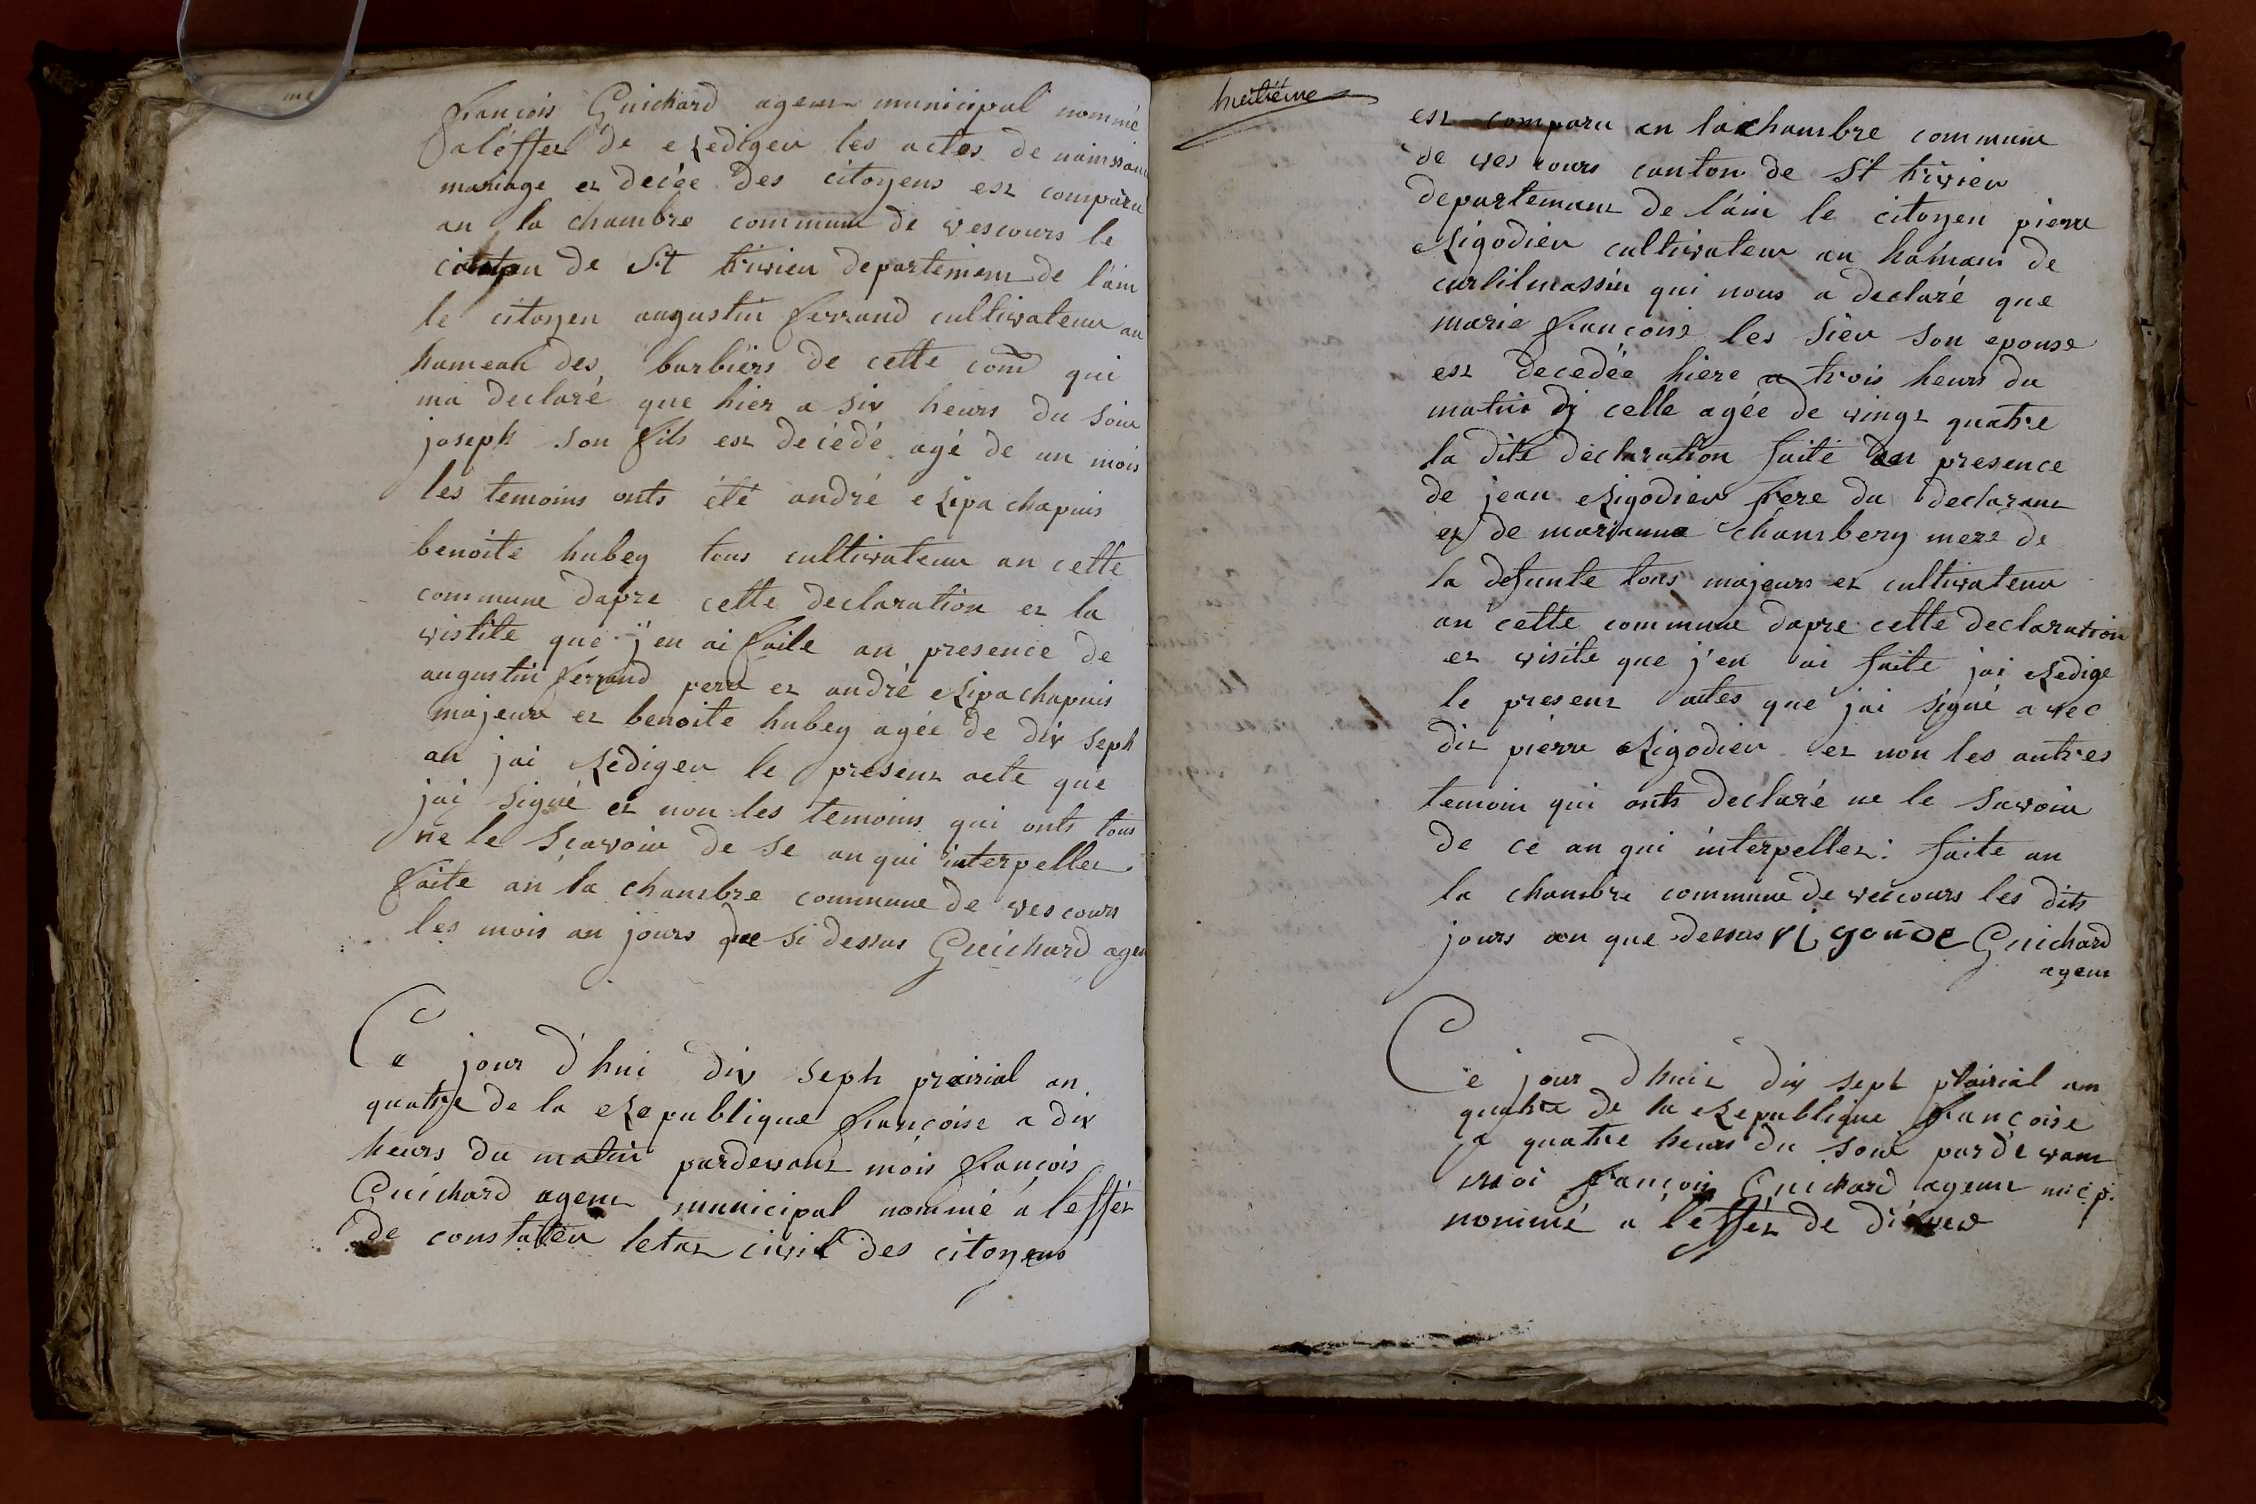 françois Guichard agent municipal nommé
a léffet de Rediger les actes de naissance
mariage et décée des citoyens est comparu
an la chambre commune de vescours le
canton de St trivier departement de l'ain
le citoyen augustin ferrand cultivateur au
hameau des barbiers de cette com̃ qui
ma declaré que hier a six heurs du soir
joseph son fils est decédé agé de un mois
les temoins onts été andré Ripa chapuis
benoite hubey tous cultivateur an cette
commune dapre cette declaration et la
vistite que j'en ai faite an presence de
augustin ferrand pere et andré Ripa chapuis
majeur et benoite hubey agée de dix seph
an jai Rediger le present acte que
jai signé et non les temoins qui onts tous
ne le sçavoir de se an qui interpeller
faite an la chambre commune de vescours
les mois an jours que si dessus Guichard agen
Ce jour d'hui dix seph prairial an
quatre de la Republique françoise a dix
heurs du matin pardevant mois françois
Guichard agent municipal nommé a leffet
de constater letat civil des citoyens
huitiéme
est comparu an la chambre commune
de vescours canton de St trivier
departement de l'ain le citoyen pierre
Rigodier cultivateur au hamau de
curtilmassin qui nous a declaré que
marie françoise les sieu son epouse
est decedée hiere a trois heurs du
matin dj celle agée de vingt quatre
la dite declaration faite en presence
de jean Rigodier frere du declarant
et de marianne chambery mere de
la defunte tous majeurs et cultivateur
an cette commune dapre cette declaration
et visite que j'en ai faite jai Redige
le present actes que jai signé avec
dit pierre Rigodier et non les autres
temoin qui onts declaré ne le savoir
de ce an qui interpeller. faite an
la chambre commune de vescours les dits
jours an que dessus Guichard
agent
Ce jour d'huit dix sept plairial am
quatre de la Republique françoise
a quatre heurs du soir pardevant
moi françois Guichard agent
nommé a leffet de